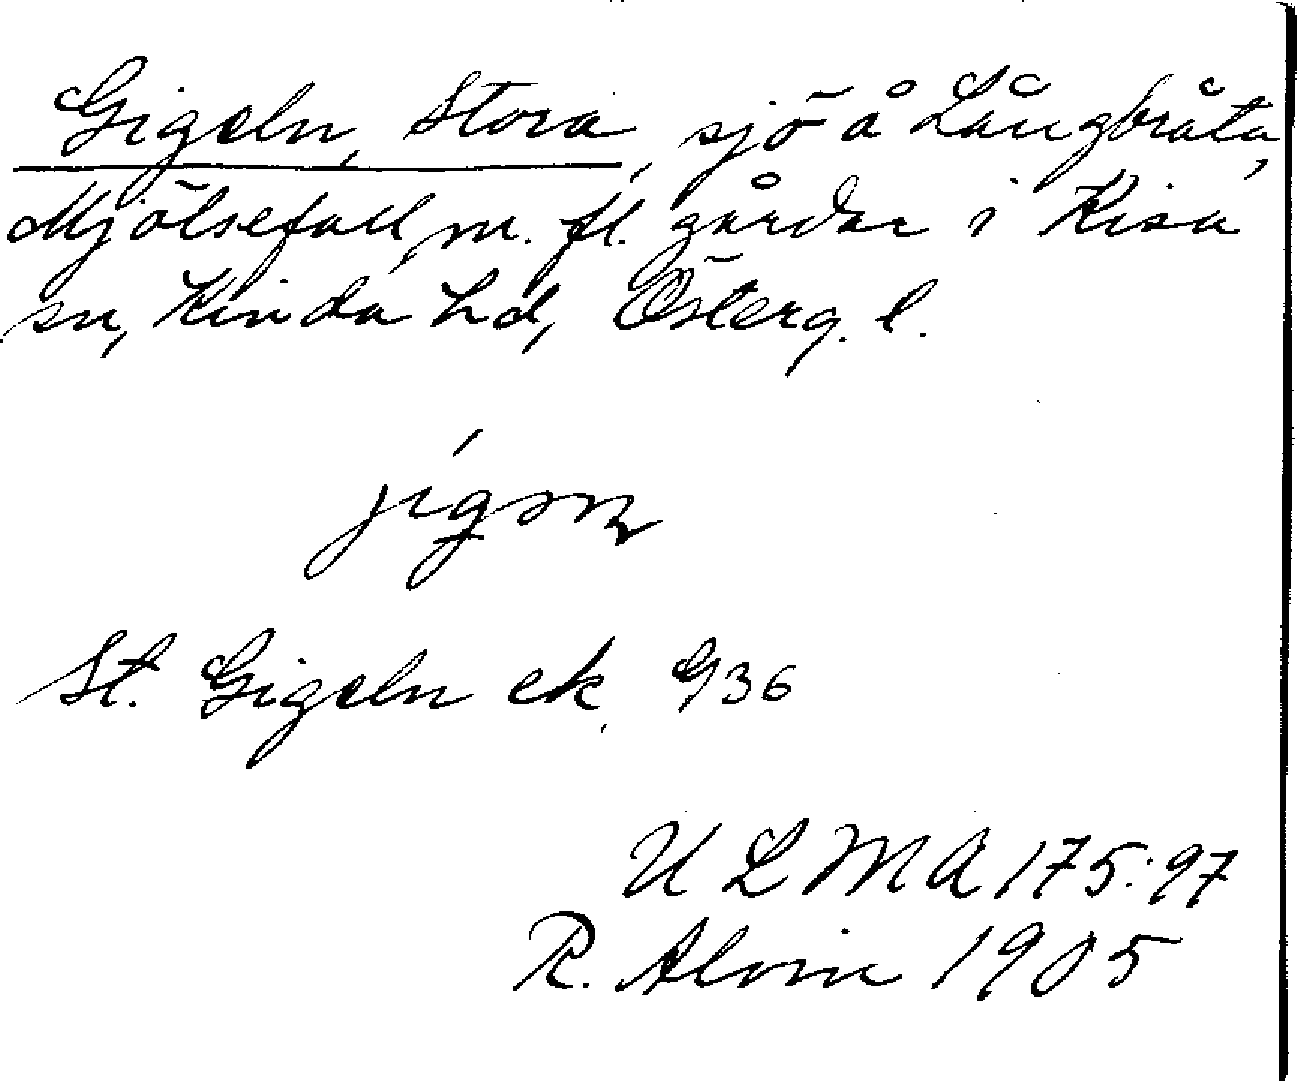 Gigeln, Stora, sjö å Långbråta,
Mjölsefall, m. fl. gårdar i Kisa
sn, Kinda hd, Österg. l.
St. Gigeln ek. G36
ULMA 175:97
R. Alvin 1905